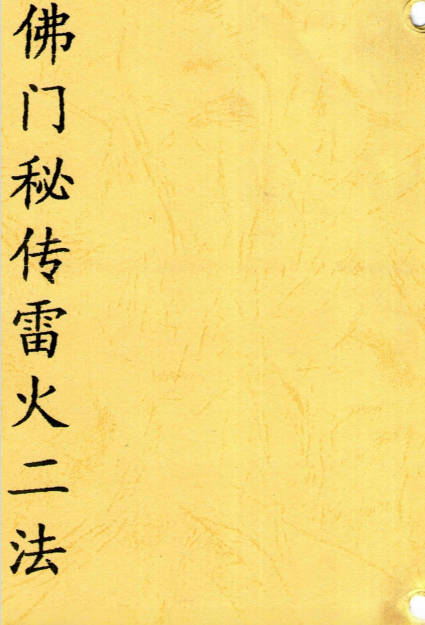 佛门秘传雷火二法